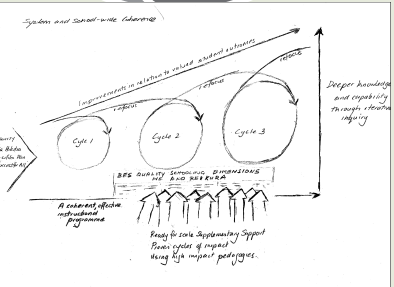 System and School-wide Coherence
Improvements in relation to valued student outcomes
refocus
refocus
refocus
Cycle 1
Cycle 2
Cycle 3
Deeper knowledge
and capability
through iterative
inquiry
BES QUALITY SCHOOLING DIMENSIONS
A coherent, effective
instructional
programme
Ready for scale Supplementary Support
Proven cycles of impact
Using high impact pedagogies.